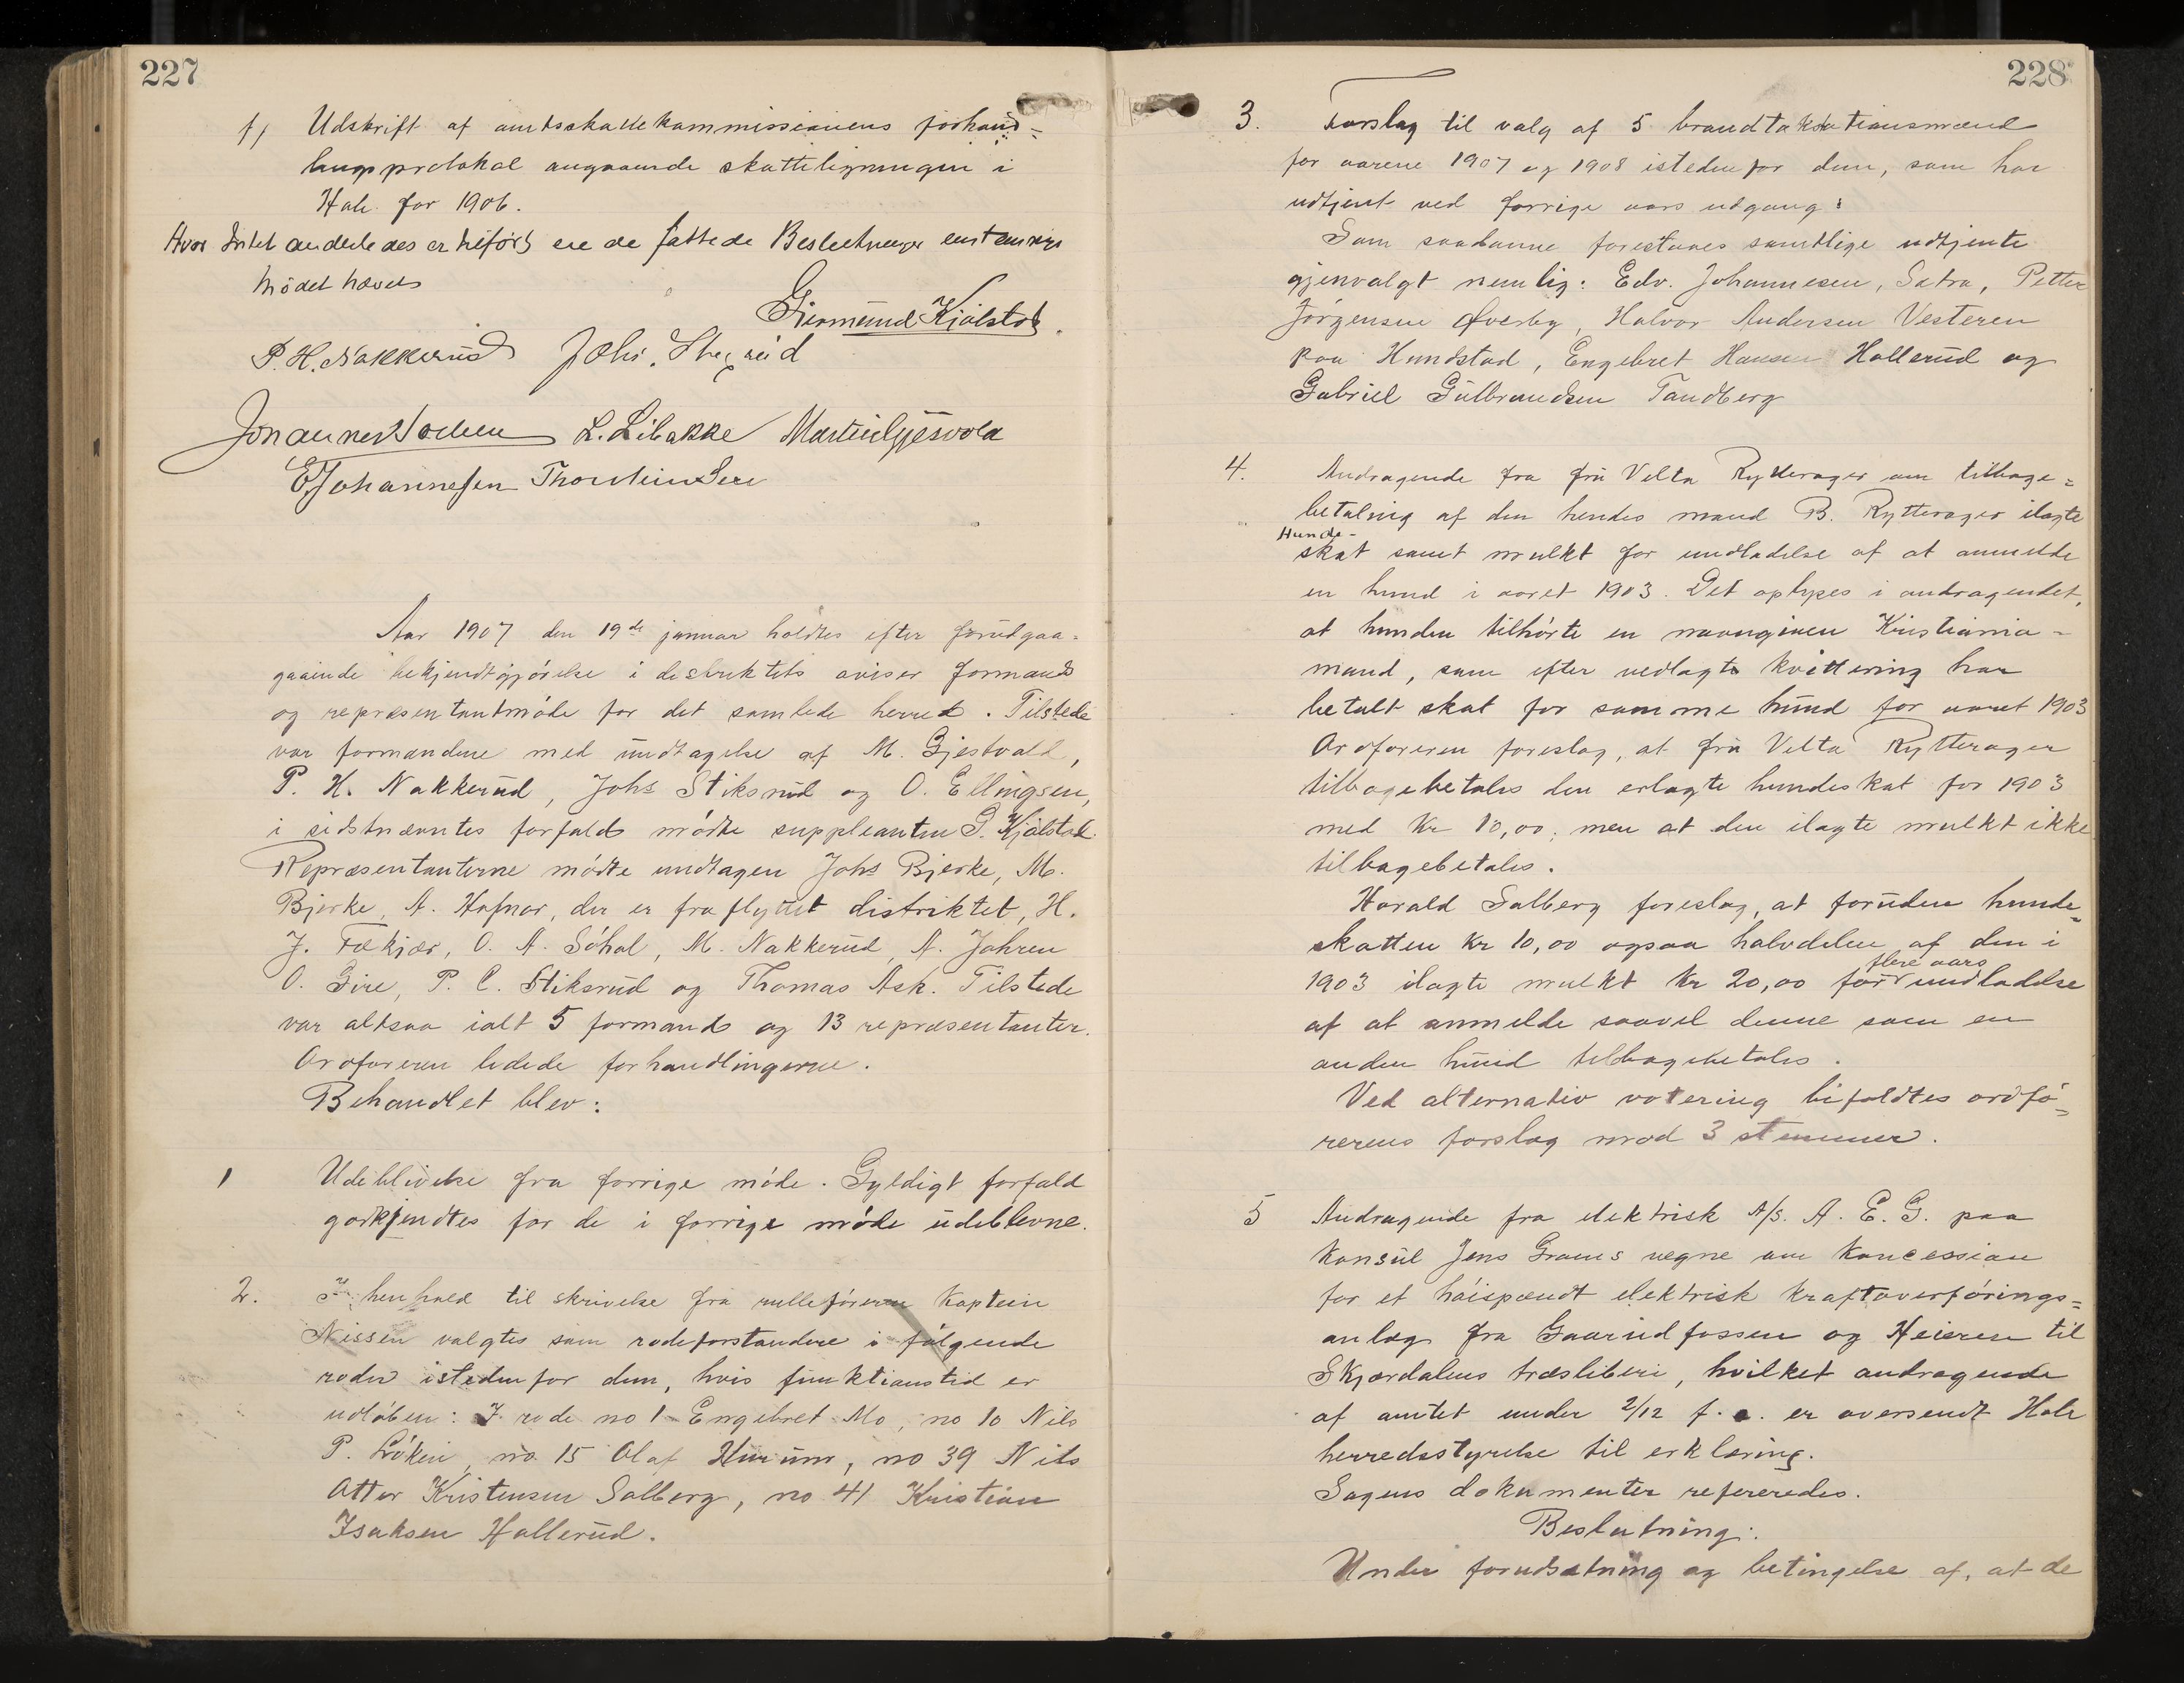 227
f) Udskrift af amtsskattekommissionens forhand-
lingsprotokol angaaende skatteligningen i
Hole for 1906.
Hvor Intet anderledes er tilført ere de fattede Beslutninger enstemmige
Mødet hævet
Giermund Kjølstad.
P. H. Nakkerud Johs. Stixrud
Johannes L. Libakke Martin Gjesvold
E Johannesen Thorstein
Aar 1907 den 19de januar holdtes efter forudgaa-
gaaende bekjendtgjørelse i destriktets aviser formands
og repræsentantmøde for det samlede herred. Tilstede
var formændene med undtagelse af M. Gjestvold,
P. H. Nakkerud, Johs Stiksrud og O. Ellingsen,
i sidstnævntes forfald mødte suppleanten G. Kjølstad.
Repræsentanterne mødte undtagen Johs Bjerke, M.
Bjerke, A. Hafnor, der er fraflyttet distriktet, H.
J. Fækjær, O. A. Søhol, M. Nakkerud, A. Jahren
O. Gire, P. C. Stiksrud og Thomas Ask. Tilstede
var altsaa ialt 5 formænd og 13 repræsentanter.
Ordføreren ledede forhandlingerne.
Behandlet blev:
1 Udeblivelse fra forrige møde. Gyldigt forfald
godkjendtes for de i forrige møde udeblevne.
2. I henhold til skrivelse fra rulleføreren Kaptein
Nissen valgtes som rodeforstandere i følgende
roder istedenfor dem, hvis funktionstid er
udløben: I rode no 1 Engebret Mo, no 10 Nils
P. Løken, no. 15 Olaf Hurum, no 39 Nils
Otter Kristensen Solberg, no 41 Kristian
Isaksen Hallerud.
228
3. Forslag til valg af 5 brandtakstationsmænd
for aarene 1907 og 1908 istedenfor dem, som har
udtjent ved forrige aars udgang:
Som saadanne foresloaes samtlige udtjente
gjenvalgt nemlig: Edv. Johannesen, Sætra, Petter
Jørgensen Øverby, Halvor Andersen Vesteren
paa Hundstad, Engebret Hansen Hallerud og
Gabriel Gulbrandsen Tandberg
4. Andragende fra fru Velta Rytterager om tilbage=
betaling af den hendes mand B. Rytterager ilagte
Hunde-
skat samt mulkt for undladelse af at anmelde
en hund i aaret 1903. Det oplyses i andragendet,
at hunden tilhørte en navngiven Kristiania-
mand, som efter vedlagte kvittering har
betalt skat for samme hund for aaret 1903
Ordføreren foreslog, at fru Velta Rytterager
tilbagebetales den erlagte hundeskat for 1903
med Kr 10,00, men at den ilagte mulkt ikke
tilbagebetales.
Harald Solberg foreslog, at foruden hunde=
skatten Kr 10,00 ogsaa halvdelen af den i
flere aars
1903 ilagte mulkt Kr 20,00 for undladelse
af at anmelde saavel denne som en
anden hund tilbagebetales.
Ved alternativ votering bifaldtes ordfø=
rerens forslag mod 3 stemmer.
5 Andragende fra elektrisk A/S. A. E. G. paa
Konsul Jens Grams vegne om Koncession
for et høispændt elektrisk kraftoverførings=
anlæg fra Gaarudfossen og Heieren til
Skjærdalens træsliberi, hvilket andragende
af amtet under 2/12 f. a. er oversendt Hole
herredsstyrelse til erklæring.
Sagens dokumenter refereredes.
Beslutning:
Under forudsætning og betingelse af, at de